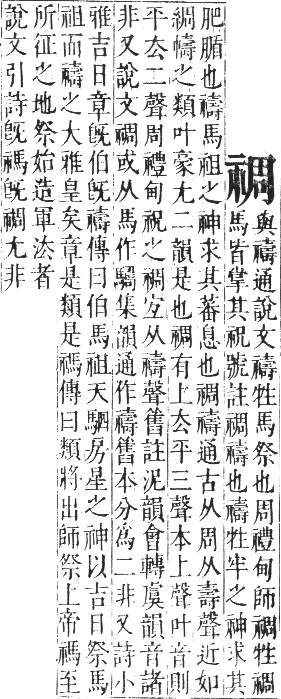 禂
與禱通說文禱牲馬祭也周禮甸師禂牲禂
馬皆掌其祝號註禂禱也禱牲牢之神求其
肥腯也禱馬祖之神求其蕃息也禂禱通古从周从壽聲近如
綢幬之類叶豪尤二韻是也禂有上去平三聲本上聲叶音則
平去二聲周禮甸祝之禂宜从禱聲舊註泥韻會轉虞韻音諸
非又說文禂或从馬作集韻通作禱舊本分為二非又詩小
雅吉日章旣伯旣禱傳曰伯馬祖天駟房星之神以吉日祭馬
祖而禱之大雅皇矣章是類是禡傳曰類將出師祭上帝禡至
所征之地祭始造軍法者
說文引詩旣禡旣禂尤非